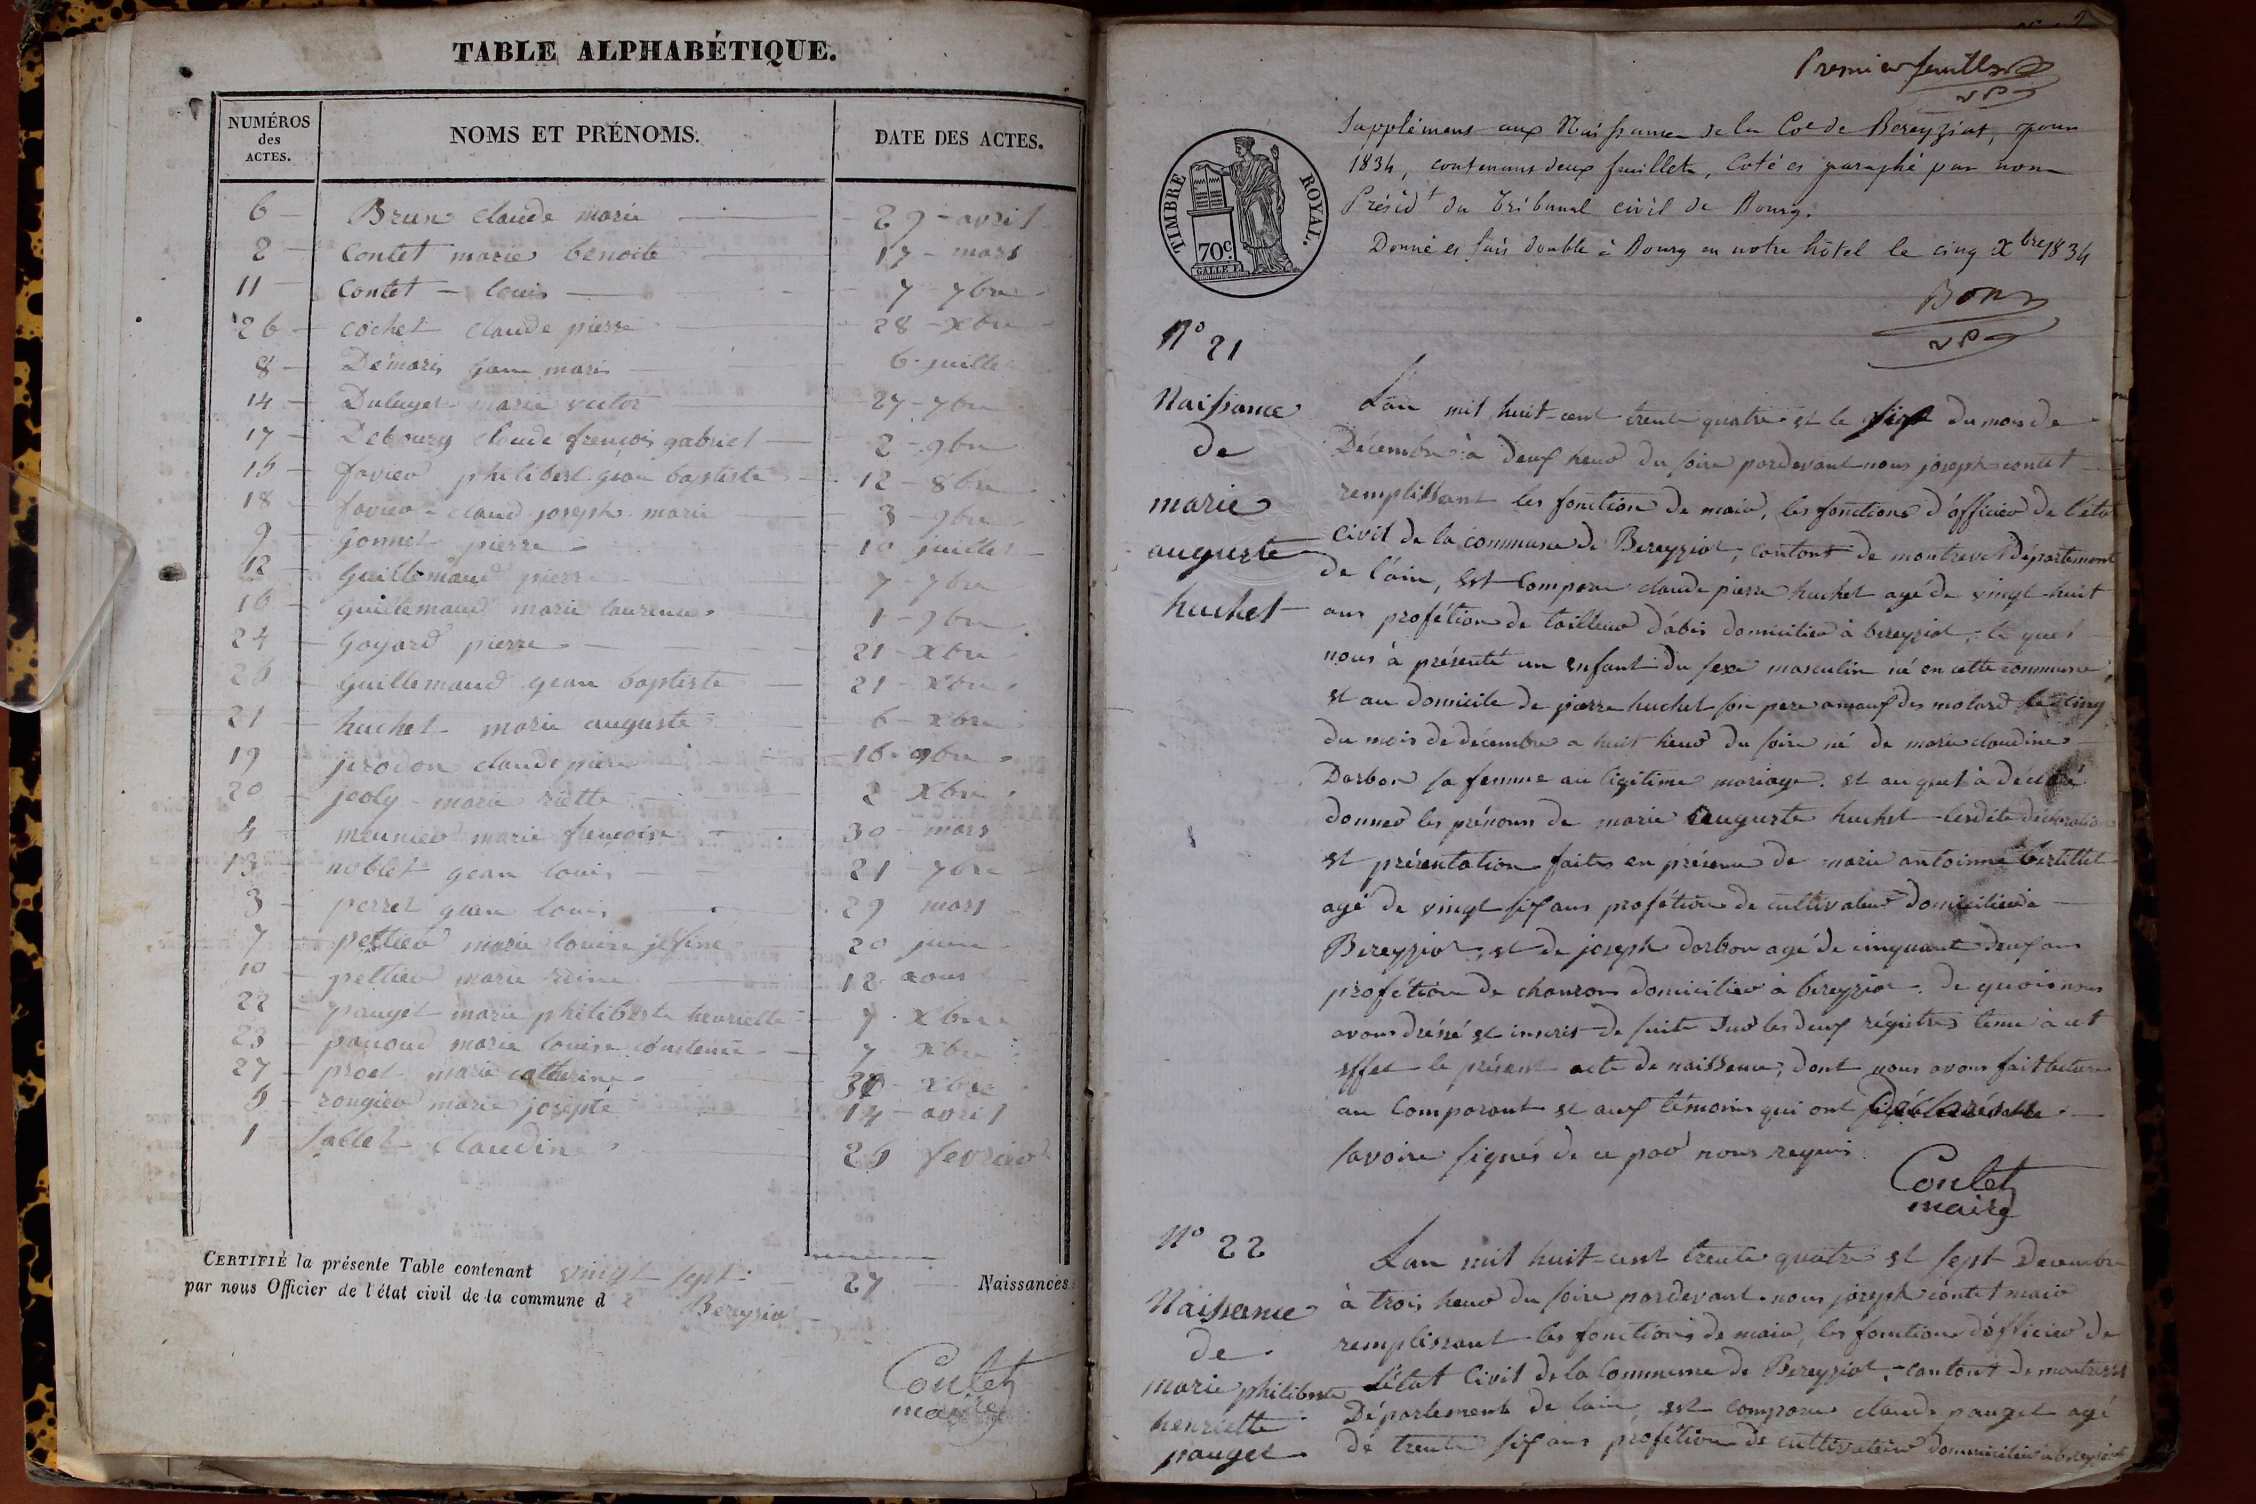 TABLE ALPHABÉTIQUE.
NUMÉROS des ACTES. NOMS ET PRÉNOMS. DATE DES ACTES.
6 Brun claude marie 29 avril
2 Contet marie benoite 17 mars
11 Contet louis 7 7bre
26 cochet claude pierre 28 xbre
8 Démaris jean marie 6 juillet
14 marie victor 27 7bre
17 Debourg claude françois gabriel 2 9bre
15 favier philibert gean baptiste 12 8bre
18 favier claud joseph marie 3 9bre
9 gonnet pierre 10 juillet
12 guillemaud pierre 7 7bre
16 guillemaud marie laurence 1 9bre
24 goyard pierre 21 xbre
25 guillemaud gean baptiste 21 xbre
21 huchet marie auguste 6 xbre
19 jerodon claude pierre 16 9bre
20 joly marie riette 2 xbre
4 meunier marie françoise 30 mars
13 noblet gean louis 21 7bre
3 perret gean louis 29 mars
7 pettier marie louise 20 juin
10 pettier marie reine 12 aoust
22 pauget marie philiberte henriette 7 xbre
23 marie louise 7 xbre
27 marie catherine xbre
5 rougier marie josepte 14 avril
1 Sallet claudine 26 fevrier
CERTIFIÉ la présente Table contenant vingt sept 27 Naissances
par nous Officier de l'état civil de la commune d e Bereyziat
Contet
maire
Premier feuillet
Supplément aux Naissances de la Cne de Bereyziat, pour
1834, contenant deux feuillets, coté et paraphé par nous
Présidt du Tribunal civil de Bourg.
Donné et fait double à Bourg en notre hôtel le cinq Xbre 1834
TIMBRE ROYAL.
70c.
Nº 21
Naissance
de
marie
auguste
huchet
L'an mil huit-cent trente quatre et le six du mois de
Décembre à deux heur du soire pardevant nous joseph contet
remplissant les fonction de maire, les fonctions d'officier de l'état
civil de la commune de Bereyziat, cantont de montrevel département
de l'ain, est Comparu claude pierre huchet agé de vingt-huit
ans profétion de tailleur d'abis domicilier à bereyziat, le quel
nous à présenté un enfant du sexe masculin né en cette commune
et au domicile de pierre huchet son pere amauf des molard le cinq
du mois de décembre a huit heur du soire né de marie claudine
Darbon sa femme au ligitime mariage. et au quel à déclaré
donner les prénoms de marie auguste huchet lesdite déclaration
et présentation faites en présence de marie antoinne bertillet
agé de vingt six ans profétion de cultivateur domicilier à
Bereyziat, et de joseph darbon agé de cinquant deux ans
profétion de domicilier à bereyziat. de quoi nous
avons dréssé et inscrit de suite sur les deux régistres tenu à cet
effet le présent acte de naissance, dont nous avons fait lecture
au Comparant et aux témoins qui ont
savoire signés de ce par nous requis.
Contet
maire
Nº 22
Naissance
de
marie philiberte
henriette
pauget
L'an mil huit-cent trente quatre et sept Decembre
à trois heur du soire pardevant nous joseph contet maire
remplissant les fonctions de maire, les fonctions d'officier de
l'état Civil de la Commune de Bereyziat, cantont de montrevel
Département de lain, est comparu claude pauget agé
de trente six ans profétion de cultivateur domicilier a bereyziat